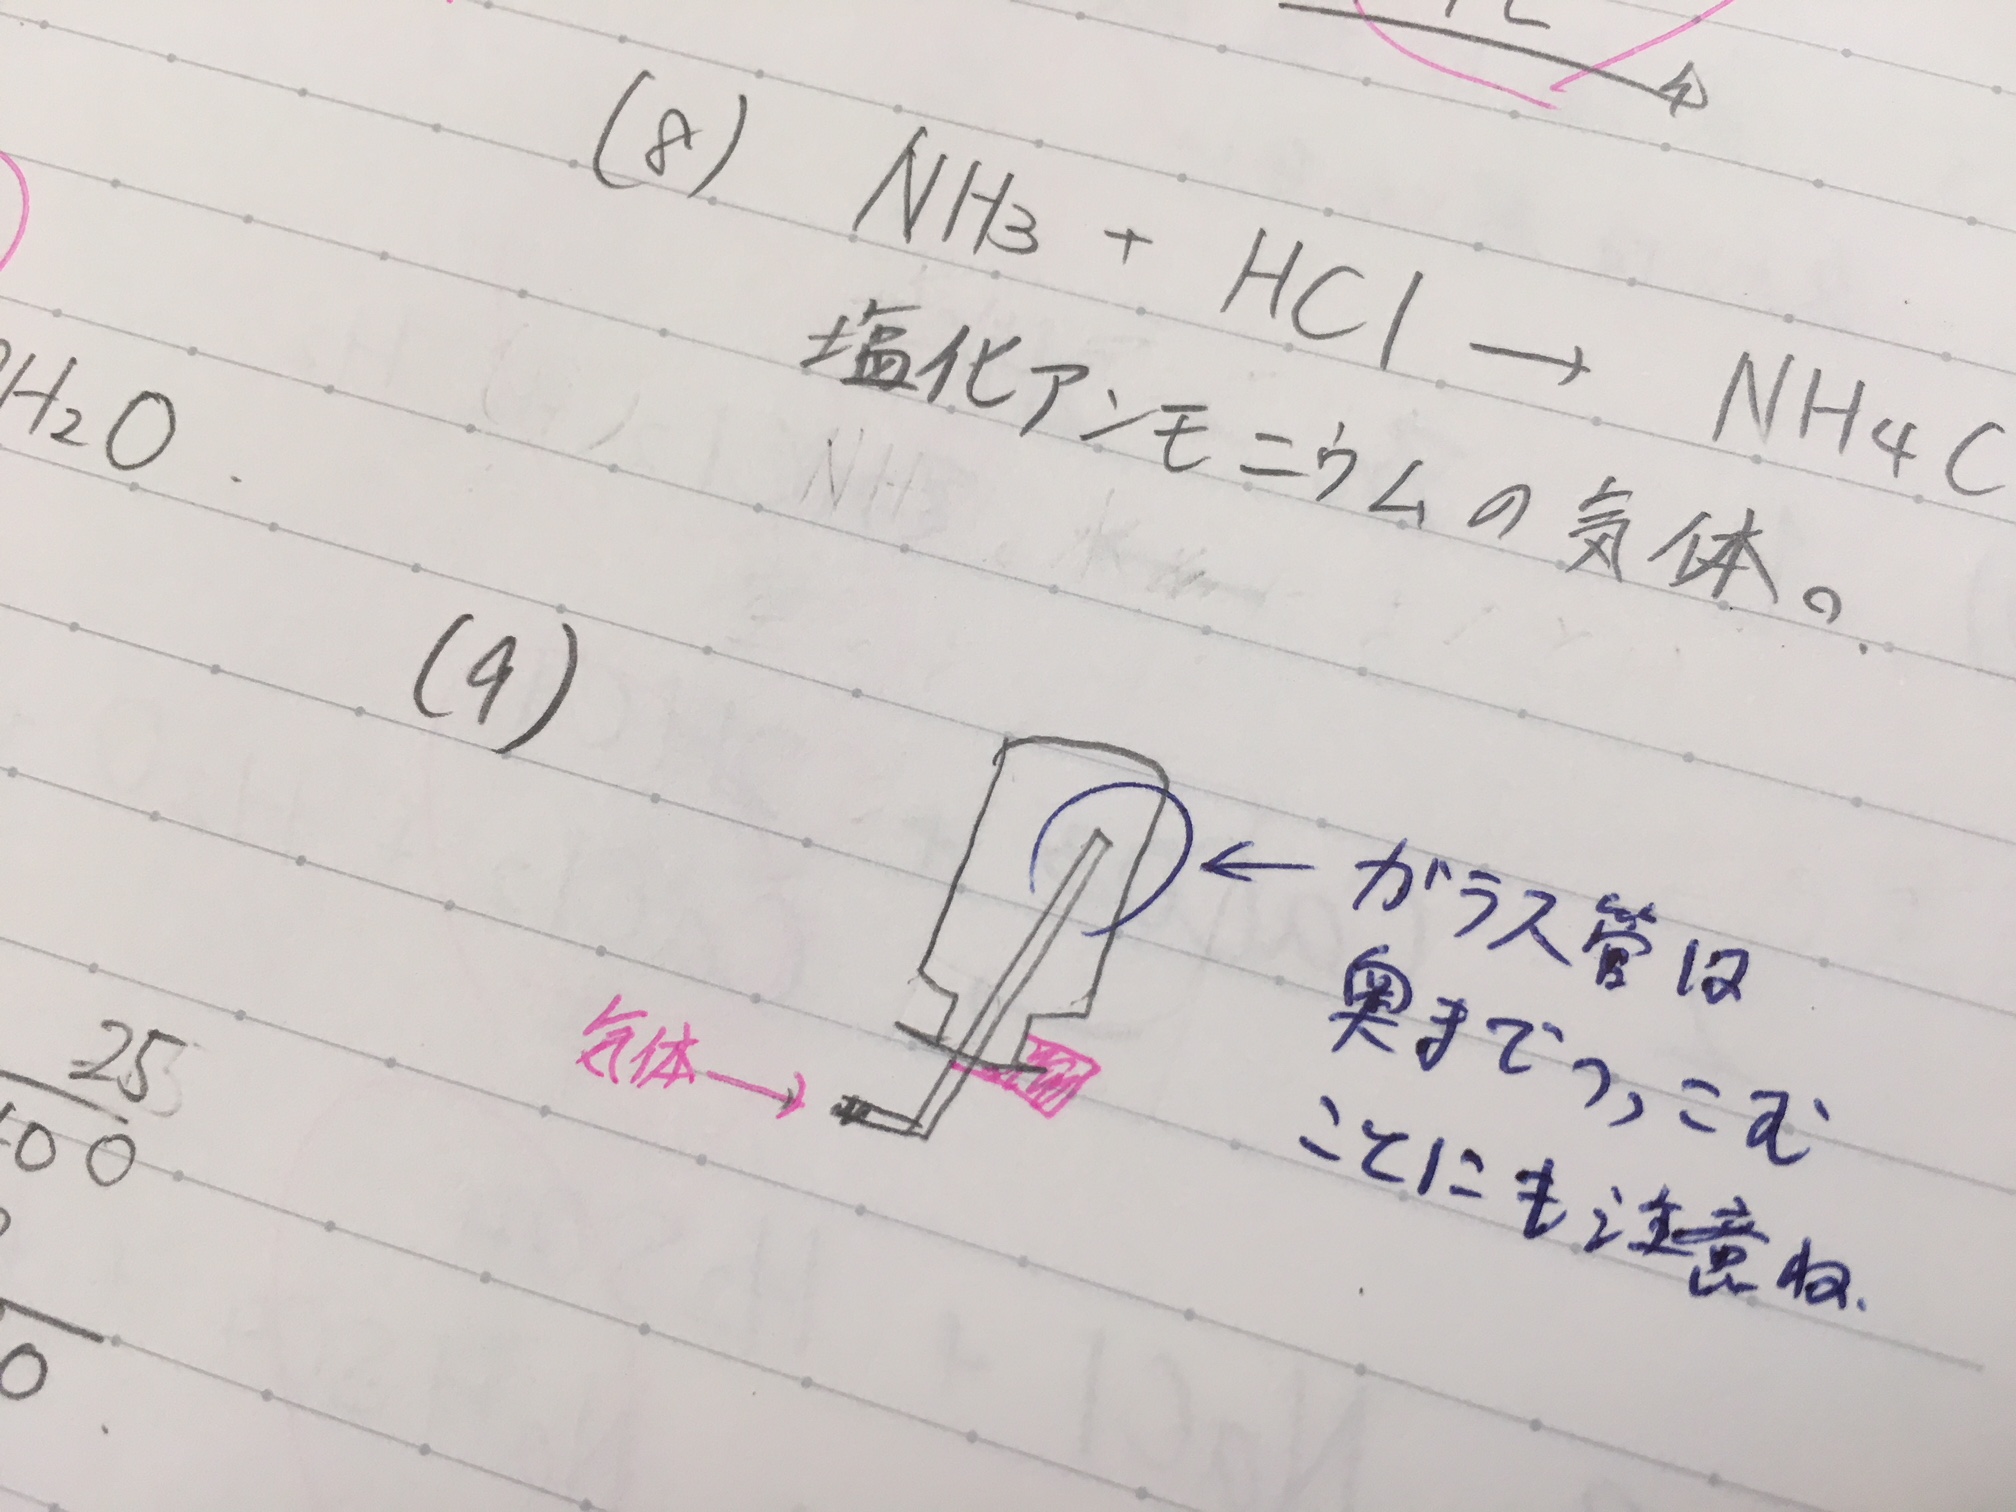 (8) NH3 + HCl → NH4C
塩化アンモニウムの気体。
H2O
(9)
← ガラス管は
奥までつっこむ
ことにも注意ね.
気体→
25
100
0